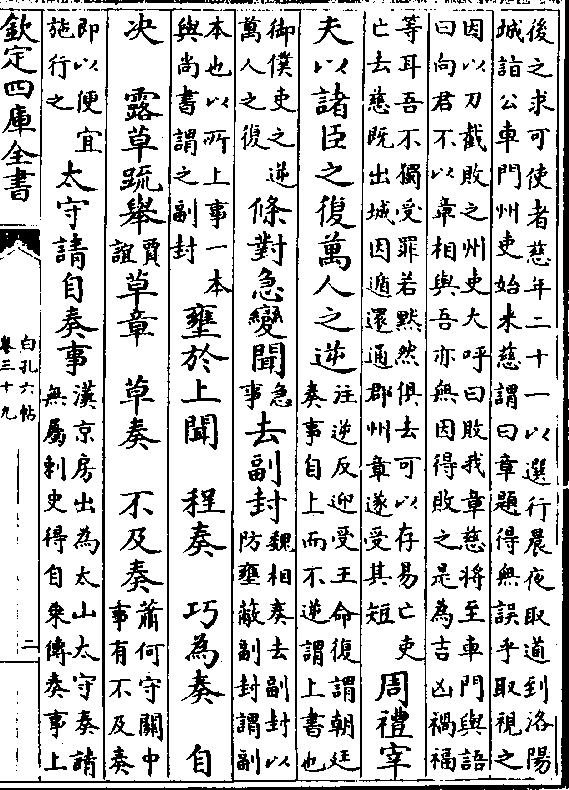 後之求可使者慈年二十一以選行晨夜取道到洛陽
城詣公車門州吏始来慈謂曰章題得無誤乎取視之
因以刀截敗之州吏大呼曰敗我章慈將至車門與語
曰向君不以章相與吾亦無因得敗之是為吉凶禍福
等耳吾不獨受罪若黙然俱去可以存易亡吏
亡去慈既出城因遁還通郡州章遂受其短
周禮宰
夫以諸臣之復萬人之逆
注逆反迎受王命復謂朝廷
奏事自上而不逆謂上書也
御僕吏之逆
萬人之復
條對急變聞
急
事
去副封
魏相奏去副封以
防壅蔽副封謂副
本也以所上事一本
與尚書謂之副封
壅於上聞 程奏 巧為奏 自
决 露草䟽舉
賈
誼
草章 草奏 不及奏
蕭何守關中
事有不及奏
即以便宜
施行之
太守請自奏事
漢京房出為太山太守奏請
無屬刺史得自乗傳奏事上
欽定四庫全書
白孔六帖
卷三十九
二